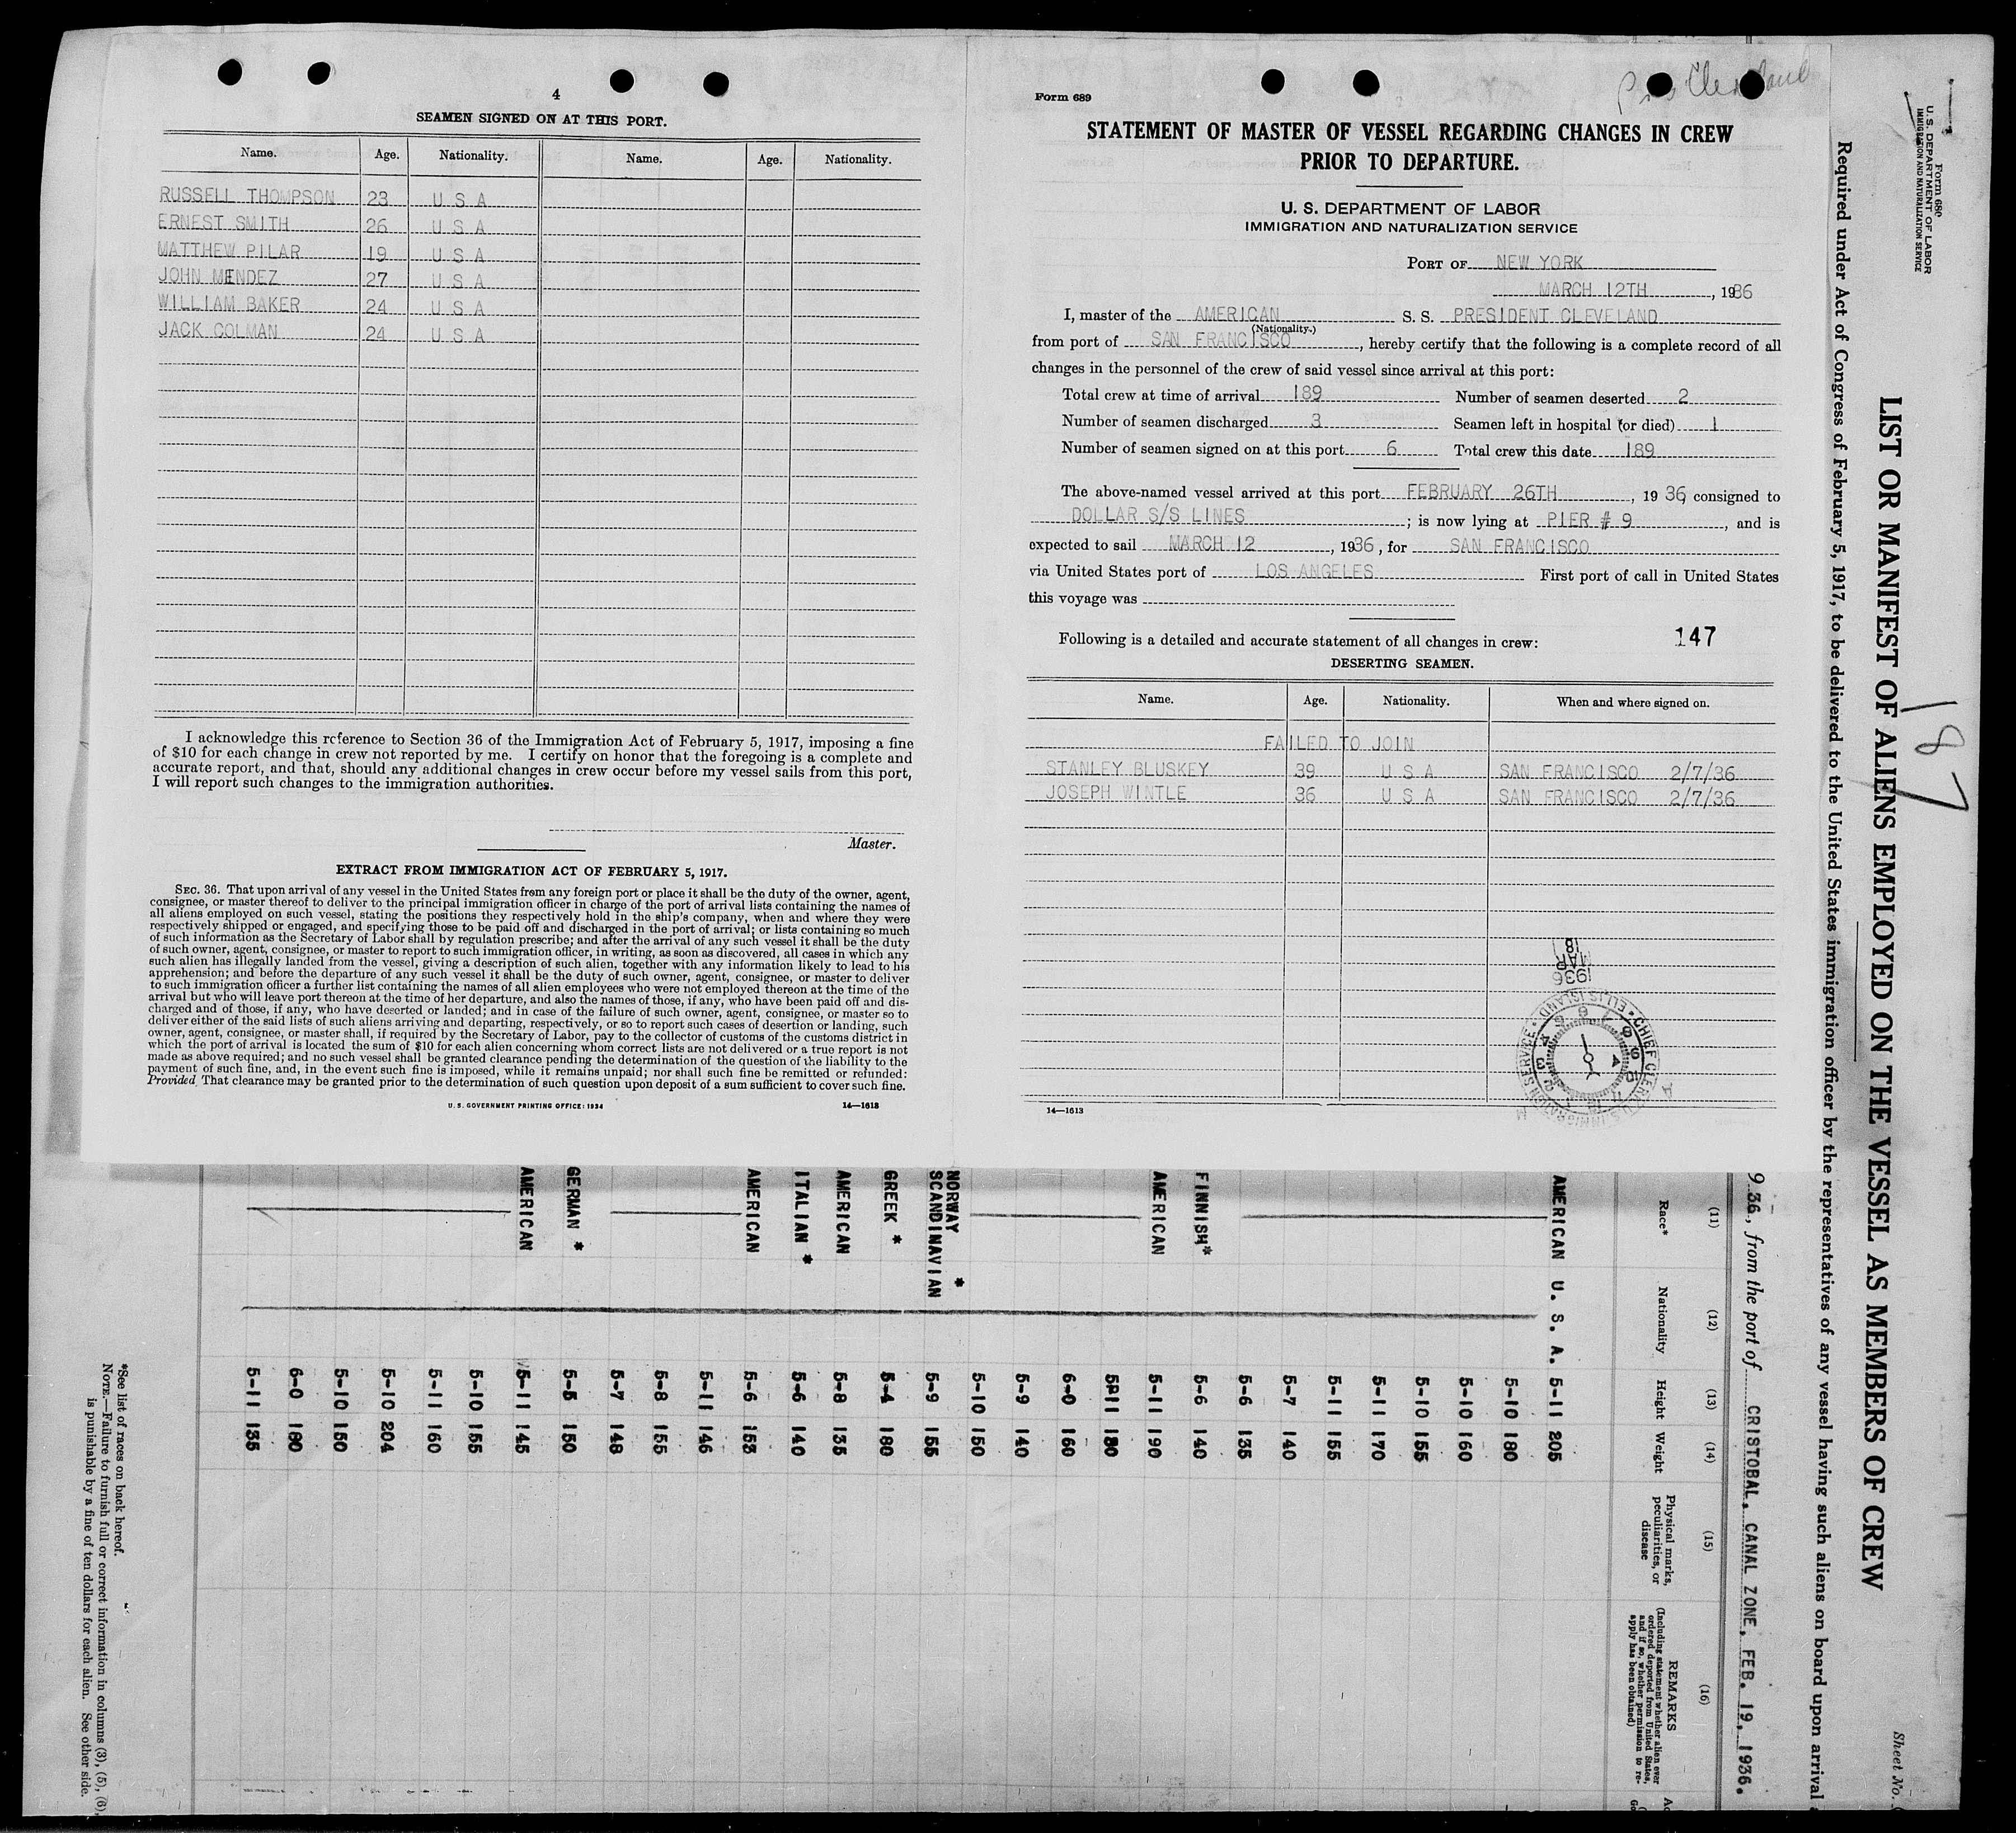 4
SEAMEN SIGNED ON AT THIS PORT.
Name. Age. Nationality. Name. Age. Nationality.
RUSSELL THOMPSON 23 U S A
ERNEST SMITH 26 U S A
MATTHEW PILAR 19 U S A
JOHN MENDEZ 27 U S A
WILLIAM BAKER 24 U S A
JACK COLMAN 24 U S A
I acknowledge this reference to Section 36 of the Immigration Act of February 5, 1917, imposing a fine
of $10 for each change in crew not reported by me. I certify on honor that the foregoing is a complete and
accurate report, and that, should any additional changes in crew occur before my vessel sails from this port,
I will report such changes to the immigration authorities.
Master.
EXTRACT FROM IMMIGRATION ACT OF FEBRUARY 5, 1917.
SEC. 36. That upon arrival of any vessel in the United States from any foreign port or place it shall be the duty of the owner, agent,
consignee, or master thereof to deliver to the principal immigration officer in charge of the port of arrival lists containing the names of
all aliens employed on such vessel, stating the positions they respectively hold in the ship's company, when and where they were
respectively shipped or engaged, and specifying those to be paid off and discharged in the port of arrival; or lists containing so much
of such information as the Secretary of Labor shall by regulation prescribe; and after the arrival of any such vessel it shall be the duty
of such owner, agent, consignee, or master to report to such immigration officer, in writing, as soon as discovered, all cases in which any
such alien has illegally landed from the vessel, giving a description of such alien, together with any information likely to lead to his
apprehension; and before the departure of any such vessel it shall be the duty of such owner, agent, consignee, or master to deliver
to such immigration officer a further list containing the names of all alien employees who were not employed thereon at the time of the
arrival but who will leave port thereon at the time of her departure, and also the names of those, if any, who have been paid off and dis-
charged and of those, if any, who have deserted or landed; and in case of the failure of such owner, agent, consignee, or master so to
deliver either of the said lists of such aliens arriving and departing, respectively, or so to report such cases of desertion or landing, such
owner, agent, consignee, or master shall, if required by the Secretary of Labor, pay to the collector of customs of the customs district in
which the port of arrival is located the sum of $10 for each alien concerning whom correct lists are not delivered or a true report is not
made as above required; and no such vessel shall be granted clearance pending the determination of the question of the liability to the
payment of such fine, and, in the event such fine is imposed, while it remains unpaid; nor shall such fine be remitted or refunded:
Provided, That clearance may be granted prior to the determination of such question upon deposit of a sum sufficient to cover such fine.
U. S. GOVERNMENT PRINTING OFFICE: 1934 14—1613
Form 689
STATEMENT OF MASTER OF VESSEL REGARDING CHANGES IN CREW
PRIOR TO DEPARTURE.
U. S. DEPARTMENT OF LABOR
IMMIGRATION AND NATURALIZATION SERVICE
PORT OF NEW YORK
MARCH 12TH, 1936
I, master of the AMERICAN S. S. PRESIDENT CLEVELAND
(Nationality.)
from port of SAN FRANCISCO, hereby certify that the following is a complete record of all
changes in the personnel of the crew of said vessel since arrival at this port:
Total crew at time of arrival 189 Number of seamen deserted 2
Number of seamen discharged 3 Seamen left in hospital (or died) 1
Number of seamen signed on at this port 6 Total crew this date 189
The above-named vessel arrived at this port FEBRUARY 26TH, 1936, consigned to
DOLLAR S/S LINES; is now lying at PIER # 9, and is
expected to sail MARCH 12, 1936, for SAN FRANCISCO
via United States port of LOS ANGELES First port of call in United States
this voyage was
Following is a detailed and accurate statement of all changes in crew: 147
DESERTING SEAMEN.
Name. Age. Nationality. When and where signed on.
FAILED TO JOIN
STANLEY BLUSKEY 39 U S A SAN FRANCISCO 2/7/36
JOSEPH WINTLE 36 U S A SAN FRANCISCO 2/7/36
1936
MAR
18
CHIEF CLERK
ELLIS ISLAND
14—1613
Form 680
U. S. DEPARTMENT OF LABOR
IMMIGRATION AND NATURALIZATION SERVICE
187
Sheet No.
LIST OR MANIFEST OF ALIENS EMPLOYED ON THE VESSEL AS MEMBERS OF CREW
Required under Act of Congress of February 5, 1917, to be delivered to the United States immigration officer by the representatives of any vessel having such aliens on board upon arrival
9 36, from the port of CRISTOBAL, CANAL ZONE, FEB. 19, 1936.
(11) (12) (13) (14) (15) (16)
Race* Nationality Height Weight Physical marks, peculiarities, or disease REMARKS
(Including statement whether alien ever
ordered deported from United States,
and if so, whether permission to re-
apply has been obtained)
AMERICAN U. S. A. 5-11 205
5-10 180
5-10 160
5-10 155
5-11 170
5-11 155
5-7 140
5-6 135
FINNISH* 5-6 140
AMERICAN 5-11 190
5-11 180
6-0 160
5-9 140
5-10 150
NORWAY *
SCANDINAVIAN 5-9 155
GREEK * 5-4 180
AMERICAN 5-8 135
ITALIAN * 5-6 140
AMERICAN 5-6 153
5-11 146
5-8 155
5-7 148
GERMAN * 5-5 150
AMERICAN 5-11 145
5-10 155
5-11 160
5-10 204
5-10 150
6-0 180
5-11 135
*See list of races on back hereof.
NOTE.—Failure to furnish full or correct information in columns (3), (5), (6),
is punishable by a fine of ten dollars for each alien. See other side.